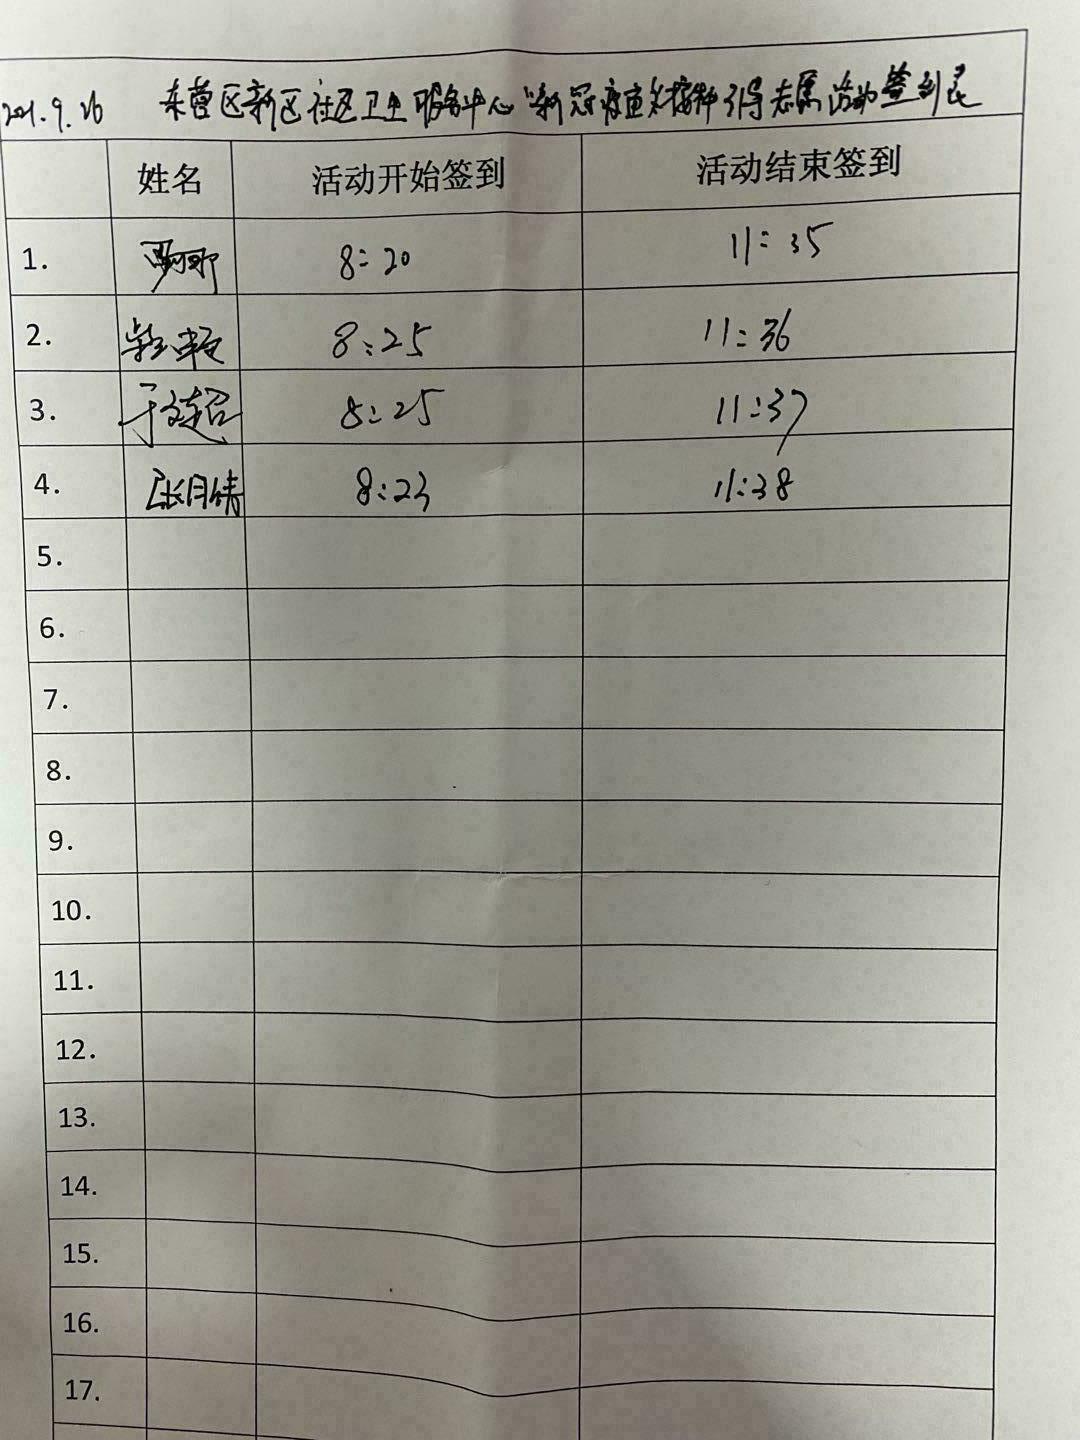 2021.9.26 东营区新区社区卫生服务中心"新冠疫苗接种引导志愿活动签到表
姓名 活动开始签到 活动结束签到
1. 8:20 11:35
2. 8:25 11:36
3. 于文超 8:25 11:37
4. 张月倩 8:23 11:38
5.
6.
7.
8.
9.
10.
11.
12.
13.
14.
15.
16.
17.